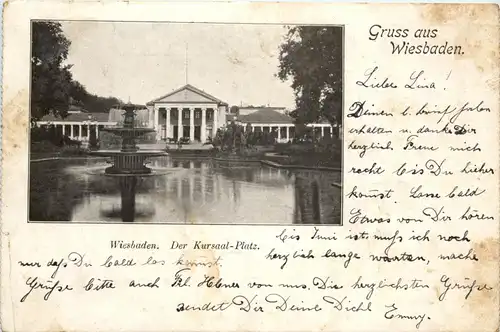 Gruss aus
Wiesbaden.
Liebe Lina!
Deinen l. Brief haben
erhalten u. danke Dir
herzlich. Freue mich
recht bis Du hieher
kommst. Lasse bald
Etwas von Dir hören
Wiesbaden. Der Kursaal-Platz.
bis Juni ist muß ich noch
nur daß Du bald los kommst. herzlich lange warten, mache
Grüße bitte auch Frl. von uns. Die herzlichsten Grüße
sendet Dir Deine Dich!
Emmy.